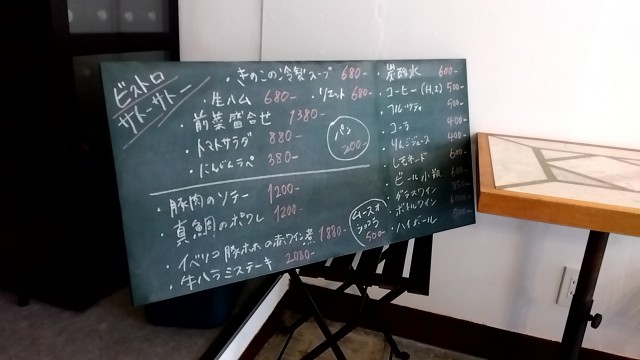 ビストロ
サトーサトー
・きのこの冷製スープ 680-
・生ハム 680-
・リエット 680-
・前菜盛合せ 1380-
・トマトサラダ 880-
・にんじんラペ 380-
パン
200-
・豚肉のソテー 1200-
・真鯛のポワレ 1200-
・イベリコ豚ホホの赤ワイン煮 1880-
・牛ハラミステーキ 2080-
ムースオ
ショコラ
500-
・炭酸水 600-
・コーヒー(H,I) 500-
・フルーツティ 500-
・コーラ 400-
・りんごジュース 400-
・レモネード 600-
・ビール小瓶
・グラスワイン
・ボトルワイン
・ハイボール